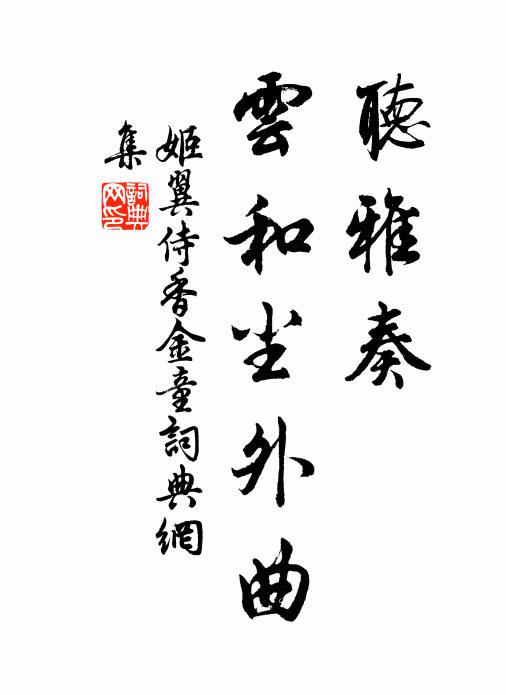 聽雅奏
雲和尘外曲
姬翼侍香金童詞典網
集
詞典
网印